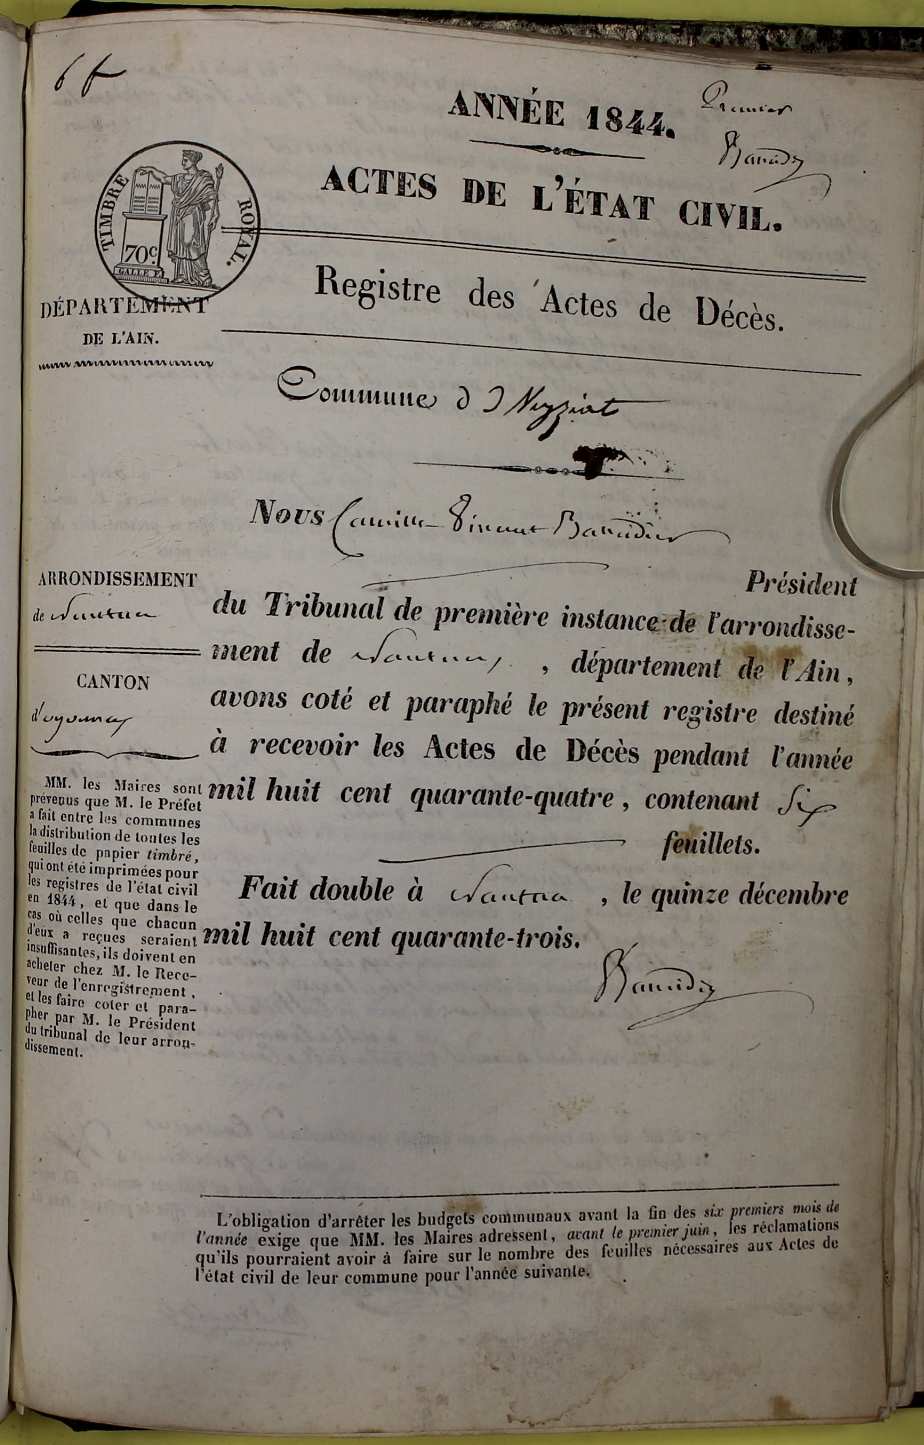 6 f
ANNÉE 1844.
Premier
TIMBRE ROYAL.
70c
ACTES DE L'ÉTAT CIVIL.
Registre des Actes de Décès.
DÉPARTEMENT
DE L'AIN.
Commune d'
Nous Camille Vincent
Président
du Tribunal de première instance de l'arrondisse-
ment de Nantua, département de l'Ain,
avons coté et paraphé le présent registre destiné
à recevoir les Actes de Décès pendant l'année
mil huit cent quarante-quatre, contenant Six
feuillets.
Fait double à Nantua, le quinze décembre
mil huit cent quarante-trois.
ARRONDISSEMENT
de Nantua
CANTON
d'oyonnax
MM. les Maires sont
prévenus que M. le Préfet
a fait entre les communes
la distribution de toutes les
feuilles de papier timbré,
qui ont été imprimées pour
les registres de l'état civil
en 1844, et que dans le
cas où celles que chacun
d'eux a reçues seraient
insuffisantes, ils doivent en
acheter chez M. le Rece-
veur de l'enregistrement,
et les faire coter et para-
pher par M. le Président
du tribunal de leur arron-
dissement.
L'obligation d'arrêter les budgets communaux avant la fin des six premiers mois de
l'année exige que MM. les Maires adressent, avant le premier juin, les réclamations
qu'ils pourraient avoir à faire sur le nombre des feuilles nécessaires aux Actes de
l'état civil de leur commune pour l'année suivante.